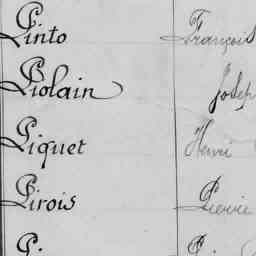 Pinto François
Piolain Josep
Piquet Henri
Pirois Pierre
Pi Pi